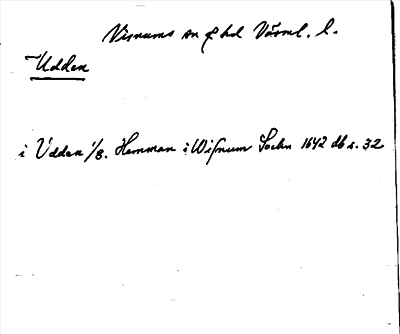 Visnums sn o hd Värml. l.
Udden
i Udden 1/8. Hemman i Wisnum Sochn 1642 db s. 32